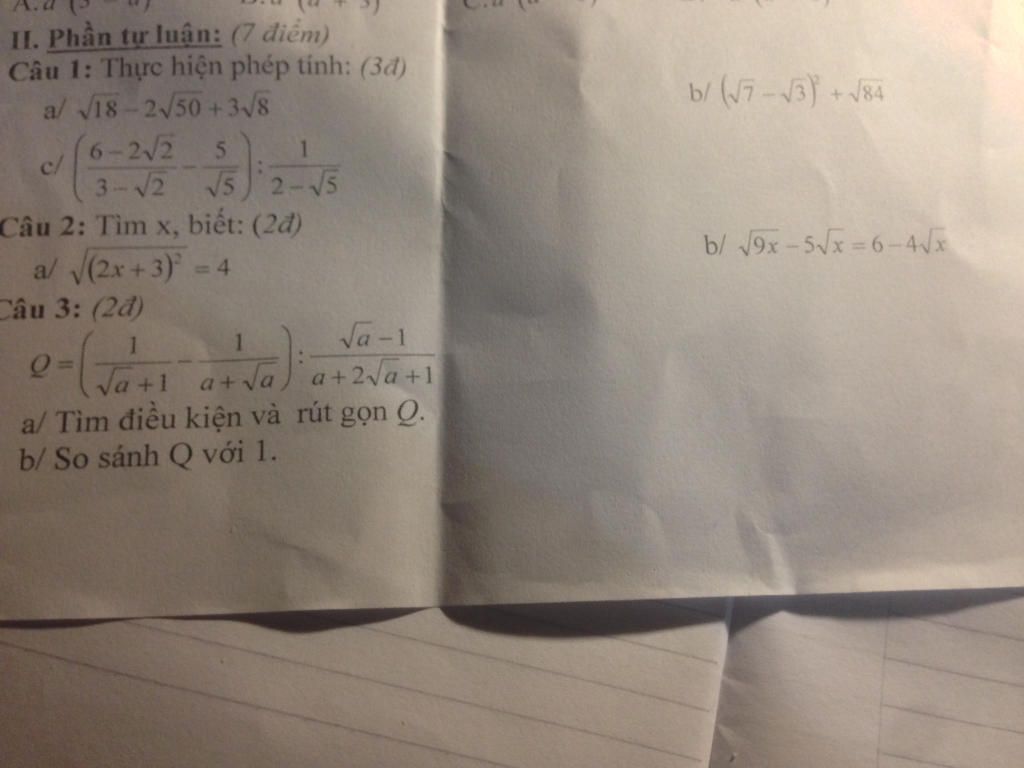 II. Phần tự luận: (7 điểm)
Câu 1: Thực hiện phép tính: (3đ)
a/ √18 − 2√50 + 3√8
b/ (√7 − √3)² + √84
c/ ((6 − 2√2)/(3 − √2) − 5/√5) : 1/(2 − √5)
Câu 2: Tìm x, biết: (2đ)
a/ √((2x + 3)²) = 4
b/ √9x − 5√x = 6 − 4√x
Câu 3: (2đ)
Q = (1/(√a + 1) − 1/(a + √a)) : (√a − 1)/(a + 2√a + 1)
a/ Tìm điều kiện và rút gọn Q.
b/ So sánh Q với 1.